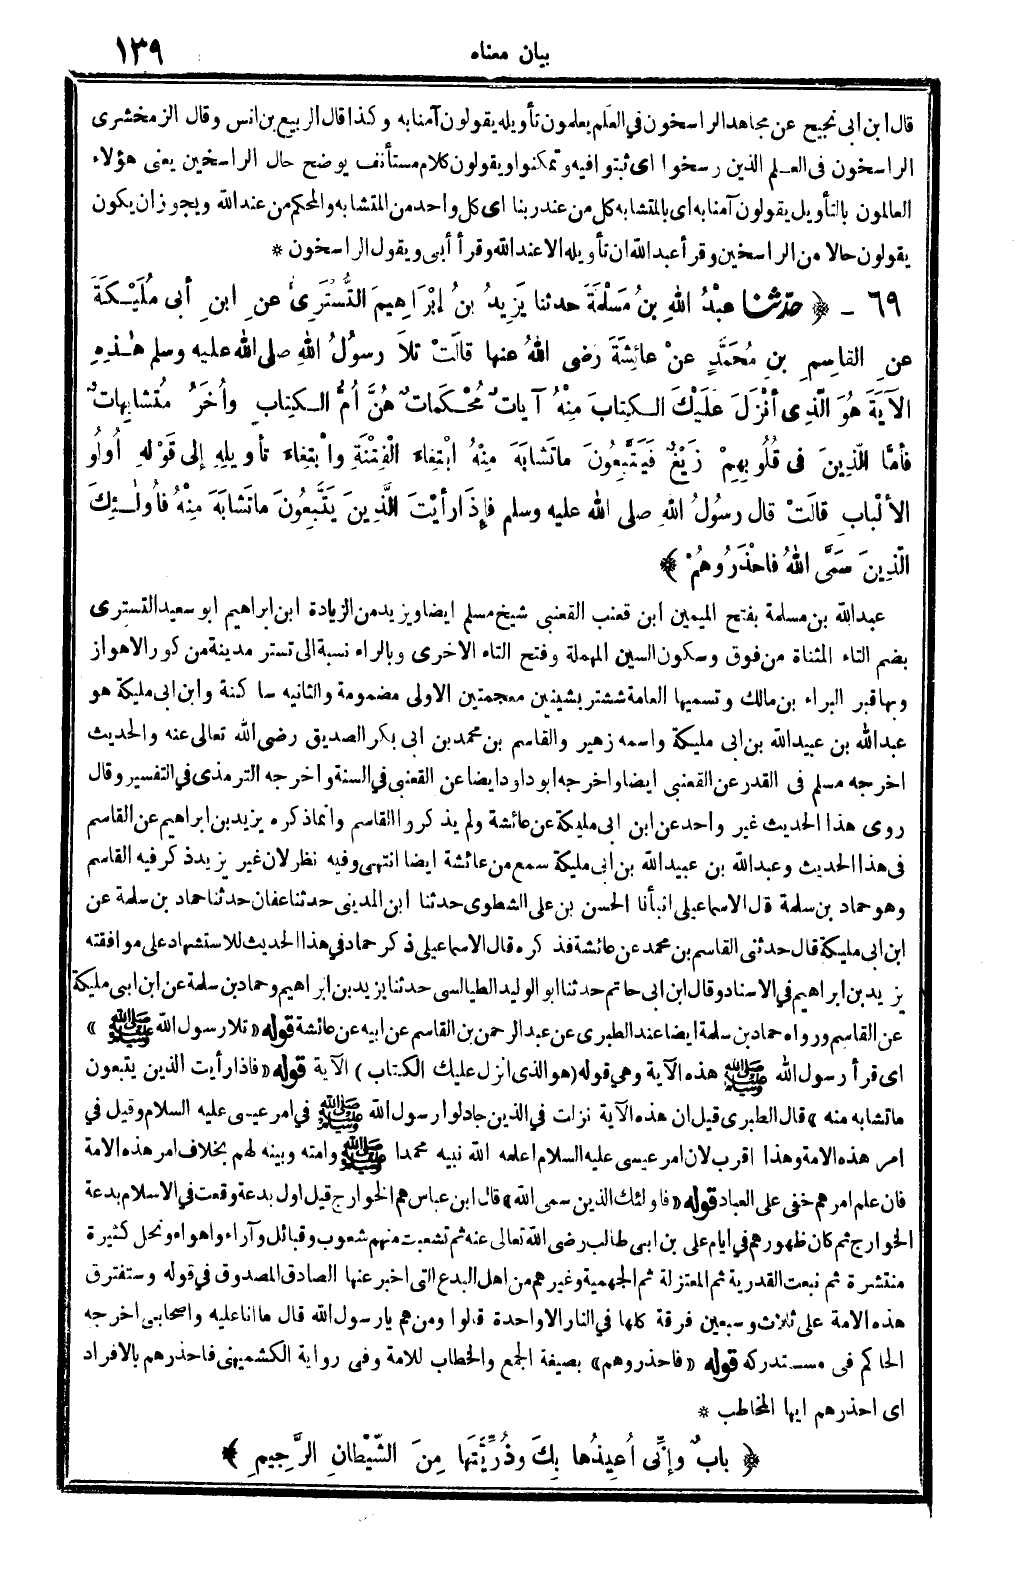 بيان معناه ١٣٩
قال ابن ابى نجيح عن مجاهد الراسخون في العلم يعلمون تأويله يقولون آمنا به وكذا قال الربيع بن انس وقال الزمخشرى
الراسخون فى العلم الذين رسخوا اى ثبتوا فيه وتمكنوا ويقولون كلام مستأنف يوضح حال الراسخين يعنى هؤلاء
العالمون بالتأويل يقولون آمنا به اى بالمتشابه كل من عند ربنا اى كل واحد من المتشابه والمحكم من عند الله ويجوز ان يكون
يقولون حالا من الراسخين وقرأ عبد الله ان تأويله الا عند الله وقرأ أبى ويقول الراسخون *
٦٩ - ﴿ حدّثنا عبْدُ اللهِ بنُ مَسْلَمَةَ حدثنا يَزِيدُ بنُ إبْرَاهِيمَ التُّسْتَرِىُّ عنِ ابنِ أبى مُلَيْكَةَ
عنِ القاسِمِ بنِ مُحَمَّدٍ عنْ عائِشَةَ رَضِى اللهُ عنها قالَتْ تَلاَ رسولُ اللهِ صلى الله عليه وسلم هٰذِهِ
الآيَةَ هُوَ الَّذِى أنْزَلَ عَلَيْكَ الكِتابَ مِنْهُ آياتٌ مُحْكَماتٌ هُنَّ أمُّ الكِتابِ وأُخَرُ مُتَشابِهاتٌ
فأمَّا الَّذِينَ فى قُلُوبِهِمْ زَيْغٌ فَيَتَّبِعُونَ ماتَشابَهَ مِنْهُ ابْتِغاءَ الْفِتْنَةِ وابْتِغاءَ تأويلِهِ إلى قَوْلِهِ أُولُو
الألْبابِ قالَتْ قال رسولُ اللهِ صلى الله عليه وسلم فإذَا رأيْتَ الَّذِينَ يَتَّبِعُونَ ماتَشابَهَ مِنْهُ فأُولٰئِكَ
الَّذِينَ سَمَّى اللهُ فاحْذَرُوهُمْ ﴾
عبدالله بن مسلمة بفتح الميمين ابن قعنب القعنبى شيخ مسلم ايضا ويزيد من الزيادة ابن ابراهيم ابو سعيد التسترى
بضم التاء المثناة من فوق وسكون السين المهملة وفتح التاء الاخرى وبالراء نسبة الى تستر مدينة من كور الاهواز
وبها قبر البراء بن مالك وتسميها العامة ششتر بشينين معجمتين الاولى مضمومة والثانيه ساكنة وابن ابى مليكة هو
عبدالله بن عبيدالله بن ابى مليكة واسمه زهير والقاسم بن محمد بن ابى بكر الصديق رضى الله تعالى عنه والحديث
اخرجه مسلم فى القدر عن القعنبى ايضا واخرجه ابو داود ايضا عن القعنبى في السنة واخرجه الترمذى في التفسير وقال
روى هذا الحديث غير واحد عن ابن ابى مليكة عن عائشة ولم يذكروا القاسم وانما ذكره يزيد بن ابراهيم عن القاسم
فى هذا الحديث وعبدالله بن عبيدالله بن ابى مليكة سمع من عائشة ايضا انتهى وفيه نظر لان غير يزيد ذكر فيه القاسم
وهو حماد بن سلمة قال الاسماعيلى انبأنا الحسن بن على الشطوى حدثنا ابن المدينى حدثنا عفان حدثنا حماد بن سلمة عن
ابن ابى مليكة قال حدثنى القاسم بن محمد عن عائشة فذكره قال الاسماعيلى ذكر حماد في هذا الحديث للاستشهاد على موافقته
يزيد بن ابراهيم في الاسناد وقال ابن ابى حاتم حدثنا ابو الوليد الطيالسى حدثنا يزيد بن ابراهيم وحماد بن سلمة عن ابن ابى مليكة
عن القاسم ورواه حماد بن سلمة ايضا عند الطبرى عن عبد الرحمن بن القاسم عن ابيه عن عائشة قوله «تلا رسول الله ﷺ»
اى قرأ رسول الله ﷺ هذه الآية وهي قوله (هو الذى انزل عليك الكتاب) الآية قوله «فاذا رأيت الذين يتبعون
ما تشابه منه» قال الطبرى قيل ان هذه الآية نزلت في الذين جادلوا رسول الله ﷺ في امر عيسى عليه السلام وقيل في
امر هذه الامة وهذا اقرب لان امر عيسى عليه السلام اعلمه الله نبيه محمدا ﷺ وامته وبينه لهم بخلاف امر هذه الامة
فان علم امرهم خفى على العباد قوله «فاولئك الذين سمى الله» قال ابن عباس هم الخوارج قيل اول بدعة وقعت في الاسلام بدعة
الخوارج ثم كان ظهورهم في ايام على بن ابى طالب رضى الله تعالى عنه ثم تشعبت منهم شعوب وقبائل وآراء واهواء ونحل كثيرة
منتشرة ثم نبعت القدرية ثم المعتزلة ثم الجهمية وغيرهم من اهل البدع التى اخبر عنها الصادق المصدوق في قوله وستفترق
هذه الامة على ثلاث وسبعين فرقة كلها في النار الا واحدة قالوا ومن هم يا رسول الله قال ما انا عليه واصحابى اخرجه
الحاكم فى مستدركه قوله «فاحذروهم» بصيغة الجمع والخطاب للامة وفى رواية الكشميهنى فاحذرهم بالافراد
اى احذرهم ايها المخاطب *
﴿ بابٌ وإنِّى أُعِيذُها بِكَ وذُرِّيَّتَها مِنَ الشَّيْطانِ الرَّجِيمِ ﴾